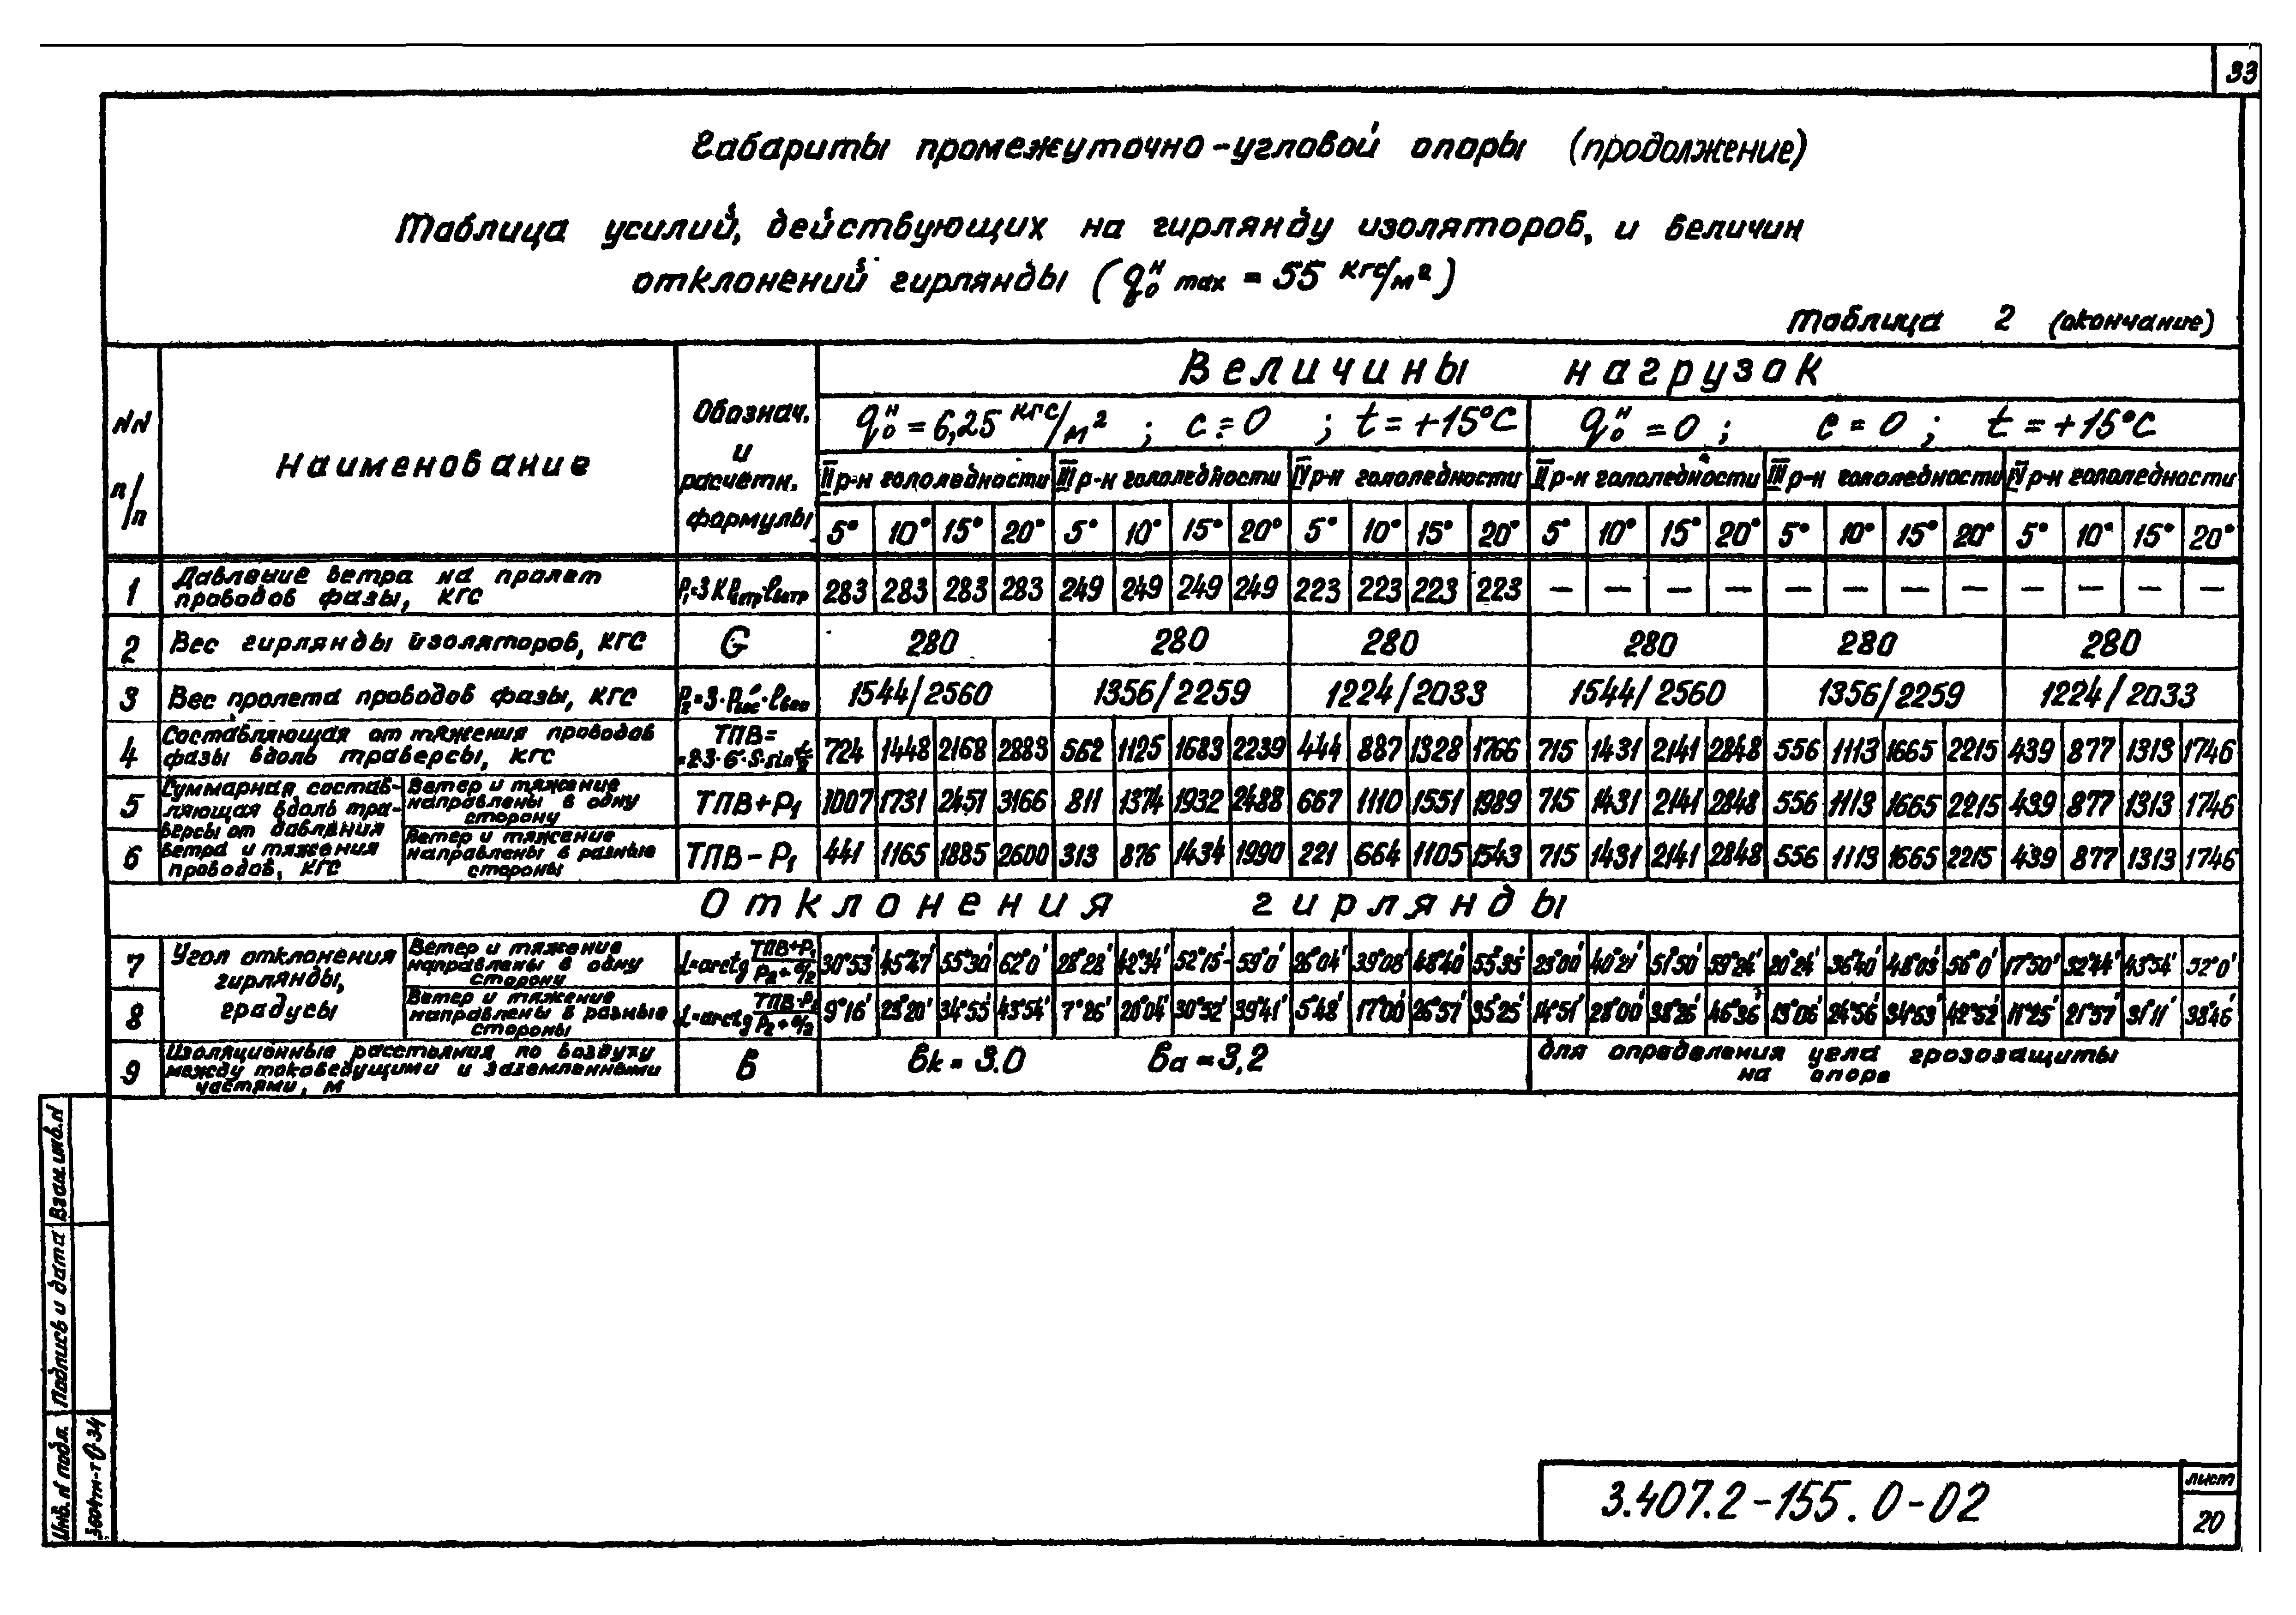 33
Габариты промежуточно-угловой опоры (продолжение)
Таблица усилий, действующих на гирлянду изоляторов, и величин
отклонений гирлянды (q₀ᴴ max = 55 кгс/м²)
Таблица 2 (окончание)
NN п/п
Наименование
Обознач. и расчетн. формулы
Величины нагрузок
q₀ᴴ = 6,25 кгс/м² ; c = 0 ; t = +15°C
q₀ᴴ = 0 ; c = 0 ; t = +15°C
II р-н гололедности III р-н гололедности IV р-н гололедности II р-н гололедности III р-н гололедности IV р-н гололедности
5° 10° 15° 20° 5° 10° 15° 20° 5° 10° 15° 20° 5° 10° 15° 20° 5° 10° 15° 20° 5° 10° 15° 20°
1 Давление ветра на пролет проводов фазы, кгс 283 283 283 283 249 249 249 249 223 223 223 223 — — — — — — — — — — — —
2 Вес гирлянды изоляторов, кгс G 280 280 280 280 280 280
3 Вес пролета проводов фазы, кгс 1544/2560 1356/2259 1224/2033 1544/2560 1356/2259 1224/2033
4 Составляющая от тяжения проводов фазы вдоль траверсы, кгс ТПВ= 724 1448 2168 2883 562 1125 1683 2239 444 887 1328 1766 715 1431 2141 2848 556 1113 1665 2215 439 877 1313 1746
Суммарная составляющая вдоль траверсы от давления ветра и тяжения проводов, кгс
5 Ветер и тяжение направлены в одну сторону ТПВ+P₁ 1007 1731 2451 3166 811 1374 1932 2488 667 1110 1551 1989 715 1431 2141 2848 556 1113 1665 2215 439 877 1313 1746
6 Ветер и тяжение направлены в разные стороны ТПВ-P₁ 441 1165 1885 2600 313 876 1434 1990 221 664 1105 1543 715 1431 2141 2848 556 1113 1665 2215 439 877 1313 1746
Отклонения гирлянды
Угол отклонения гирлянды, градусы
7 Ветер и тяжение направлены в одну сторону α=arctg (ТПВ+P₁)/(P₂+G/2) 30°53' 45°47' 55°30' 62°0' 28°28' 42°34' 52°15' 59°0' 26°04' 39°08' 48°40' 55°35' 23°00' 40°21' 51°50' 59°24' 20°24' 36°40' 48°03' 56°0' 17°50' 32°44' 43°54' 52°0'
8 Ветер и тяжение направлены в разные стороны α=arctg (ТПВ-P₁)/(P₂+G/2) 9°16' 23°20' 34°55' 43°54' 7°26' 20°04' 30°52' 39°41' 5°48' 17°00' 26°57' 35°25' 14°51' 28°00' 38°26' 46°36' 13°06' 24°56' 34°53' 42°52' 11°25' 21°57' 31°11' 38°46'
9 Изоляционные расстояния по воздуху между токоведущими и заземленными частями, м Б Бк = 3.0 Ба = 3,2 для определения угла грозозащиты на опоре
Взам. инв. N
Подпись и дата
Инв. N подл.
3.407.2-155.0-02
лист
20